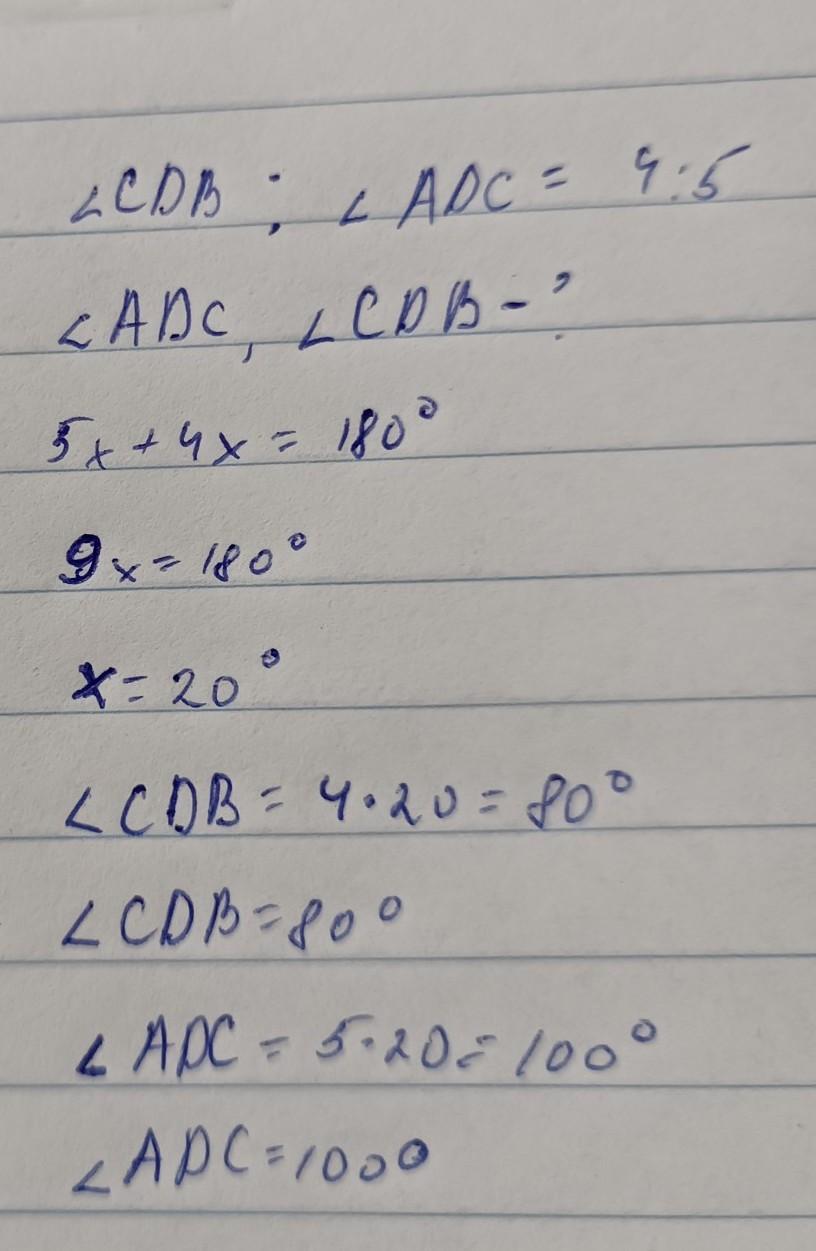 ∠CDB : ∠ADC = 4:5
∠ADC, ∠CDB - ?
5x + 4x = 180°
9x = 180°
x = 20°
∠CDB = 4·20 = 80°
∠CDB = 80°
∠ADC = 5·20 = 100°
∠ADC = 100°